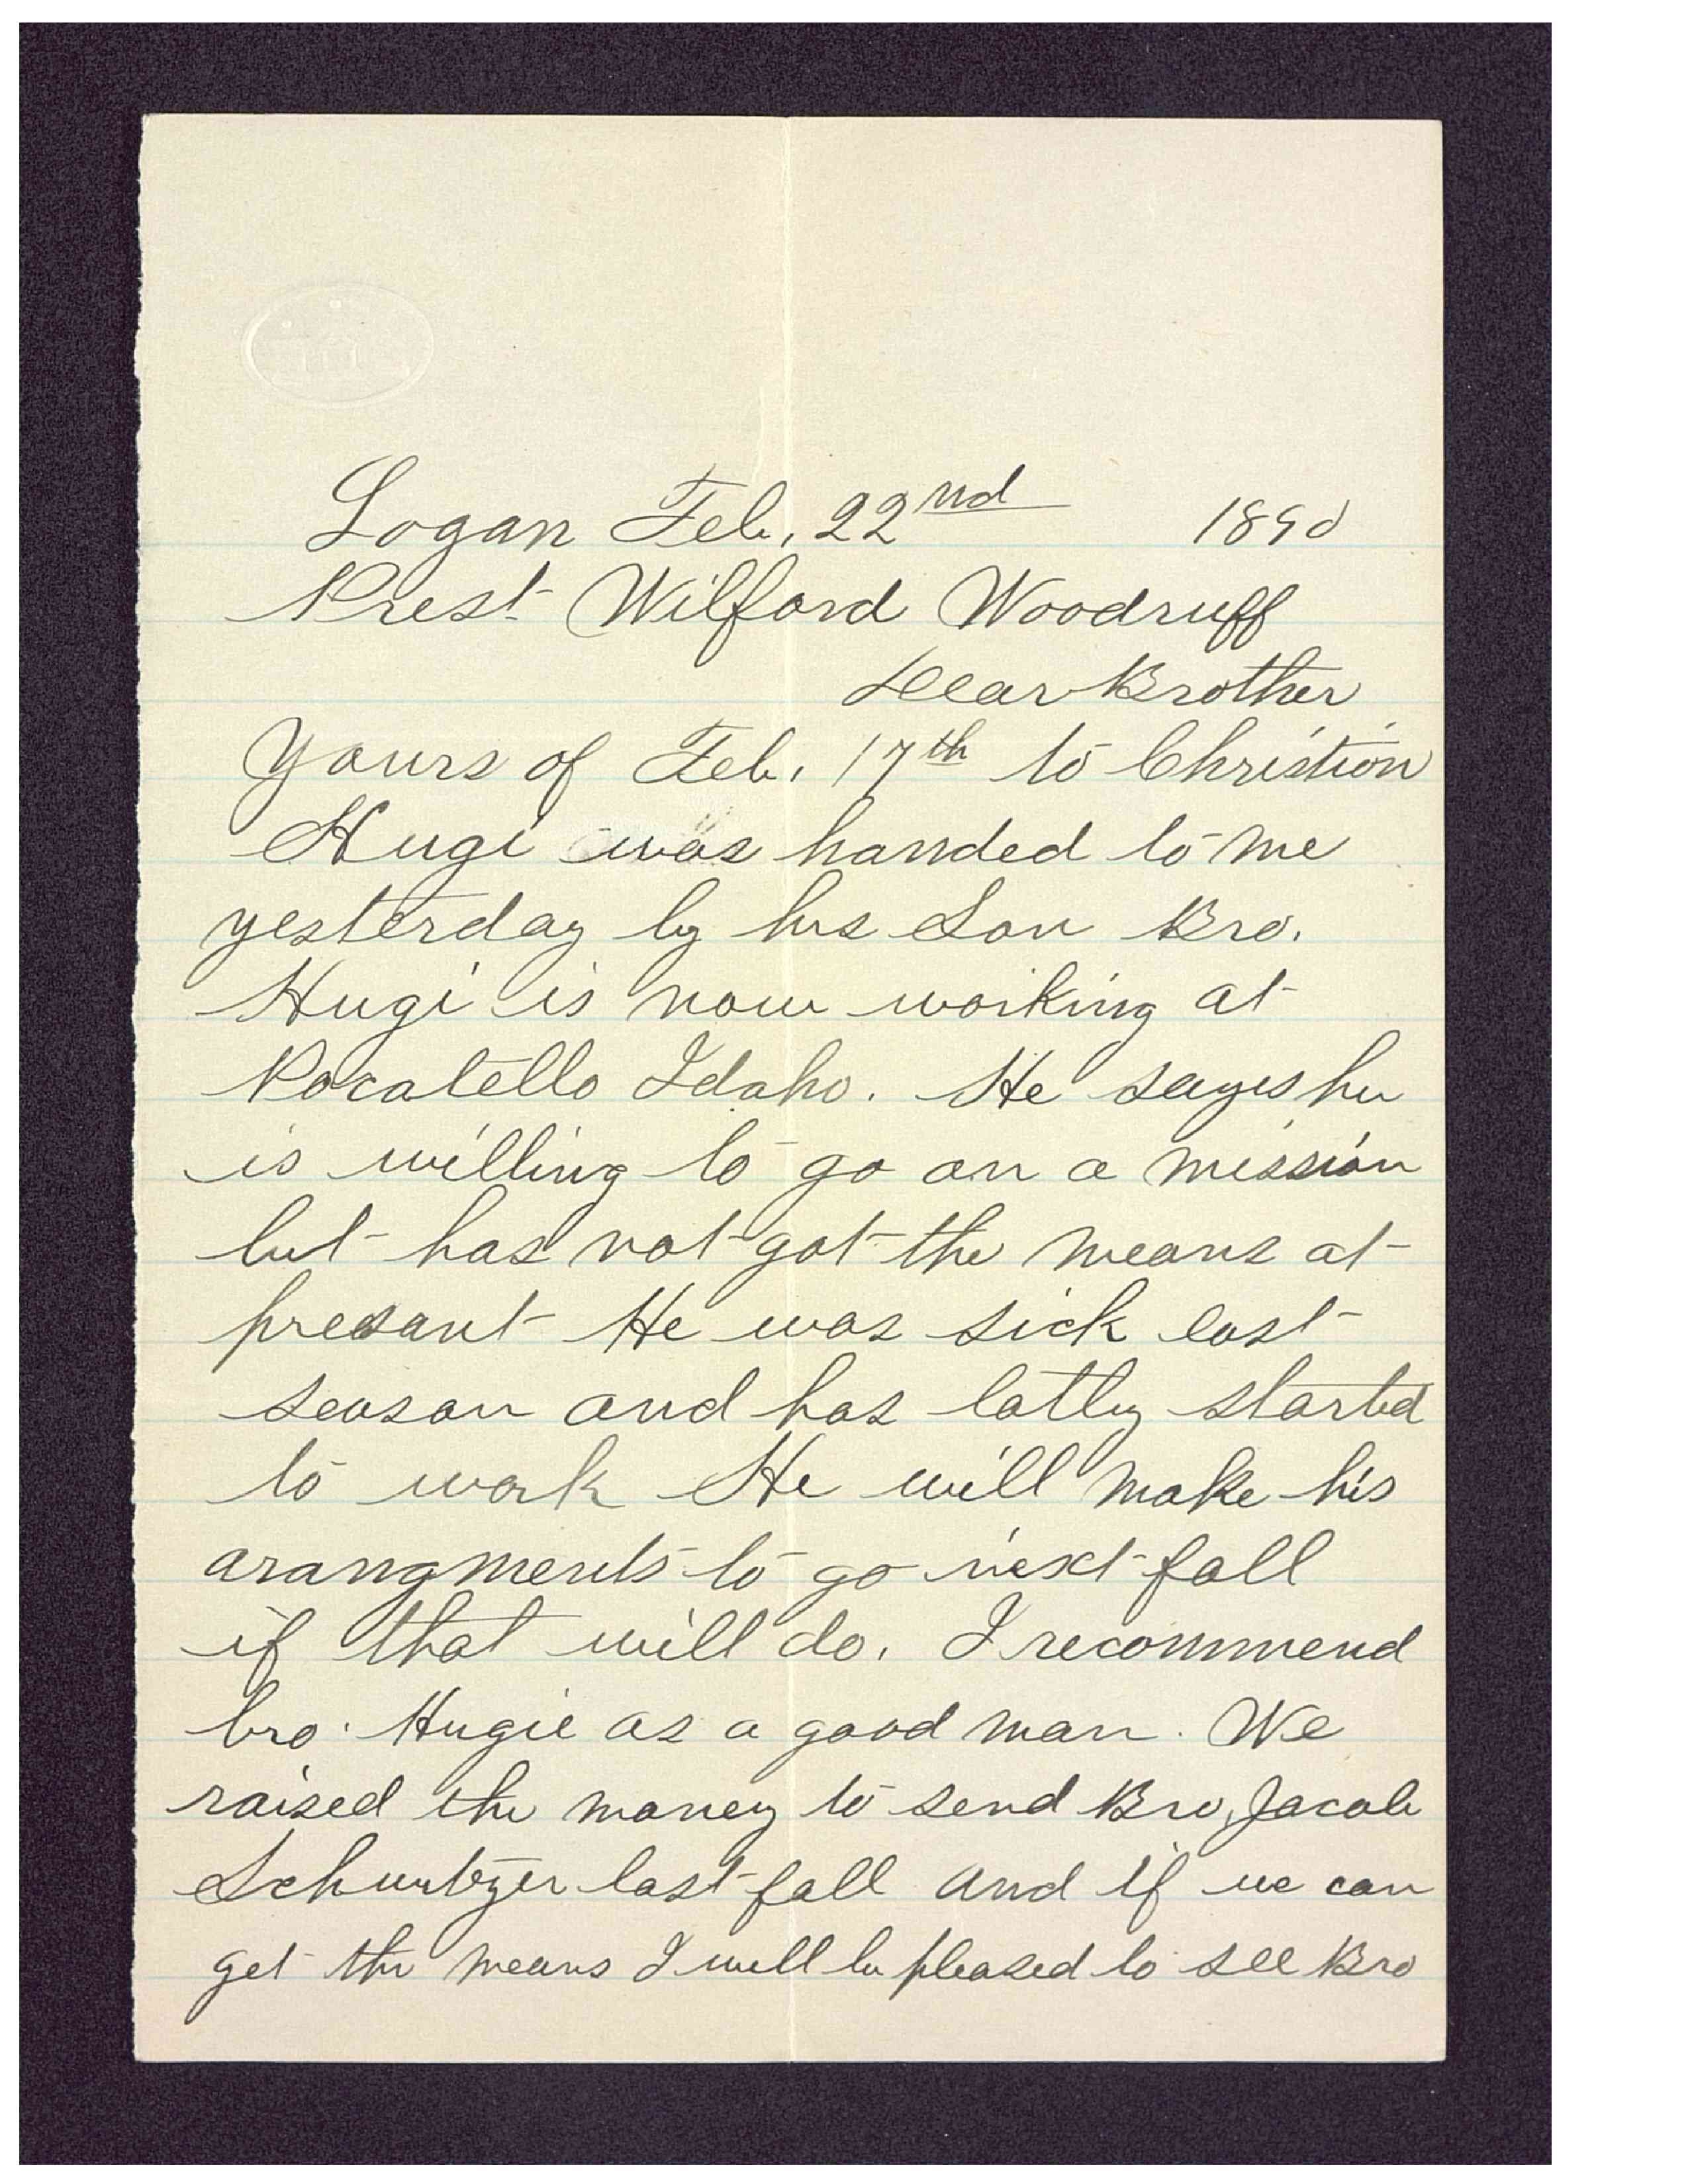 Logan Feb. 22nd 1890
Prest Wilford Woodruff
Dear Brother
Yours of Feb. 17th to Christion
Hugi was handed to me
yesterday by his Son Bro.
Hugi is now working at
Pocatello Idaho. He sayes he
is willing to go on a mission
but has not got the means at
presant He was sick last
season and has latly started
to work He will make his
arangments to go next fall
if that will do. I recommend
bro. Hugie as a good man. We
raised the money to send Bro. Jacob
last fall and if we can
get the means I will be pleased to see Bro